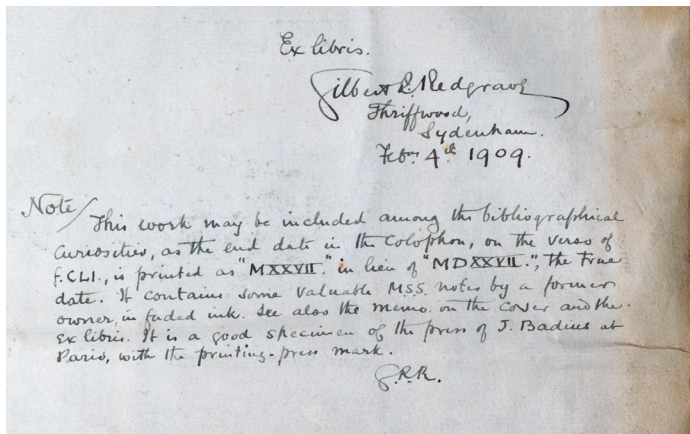 Ex libris.
Gilbert R. Redgrave
Thriffwood,
Sydenham.
Feby 4th 1909.
Note/
This work may be included among the bibliographical
Curiosities, as the end date in the Colophon, on the verso of
f. CLI., is printed as "MXXVII." in lieu of "MDXXVII.", the true
date. It contains some valuable MSS. notes by a former
owner, in faded ink. See also the memo. on the cover and the
Ex libris. It is a good specimen of the press of J. Badius at
Paris, with the printing-press mark.
G.R.R.